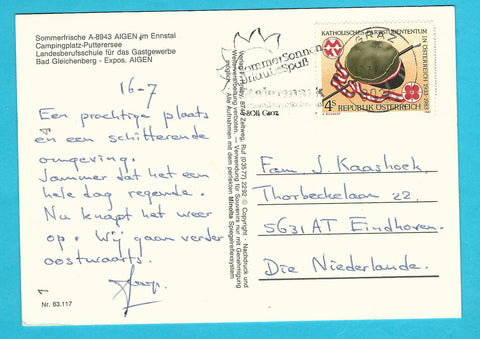 Sommerfrische A-8943 AIGEN im Ennstal
Campingplatz-Putterersee
Landesberufsschule für das Gastgewerbe
Bad Gleichenberg - Expos. AIGEN
16-7
Een prachtige plaats
en een schitterende
omgeving.
Jammer dat het een
hele dag regende.
Nu knapt het weer
op. Wij gaan verder
oostwaarts.
Nr. 83.117
Zeltweg, Ruf (03577) 2292 © Copyright - Nachdruck und
Weiterverarbeitung verboten. - Verwendung für Souvenirs nur mit Genehmigung
Alle Aufnahmen mit dem perfekten Minolta Spiegelreflexsystem
Sommer Sonnen
Urlaubs Spaß
Steiermark
8011 Graz
GRAZ
KATHOLISCHES PFARRSTUDENTENTUM
IN ÖSTERREICH 1933-1983
4s
REPUBLIK ÖSTERREICH
Fam. J. Kaashoek,
Thorbeckelaan 22.
5631 AT Eindhoven.
Die Niederlande.